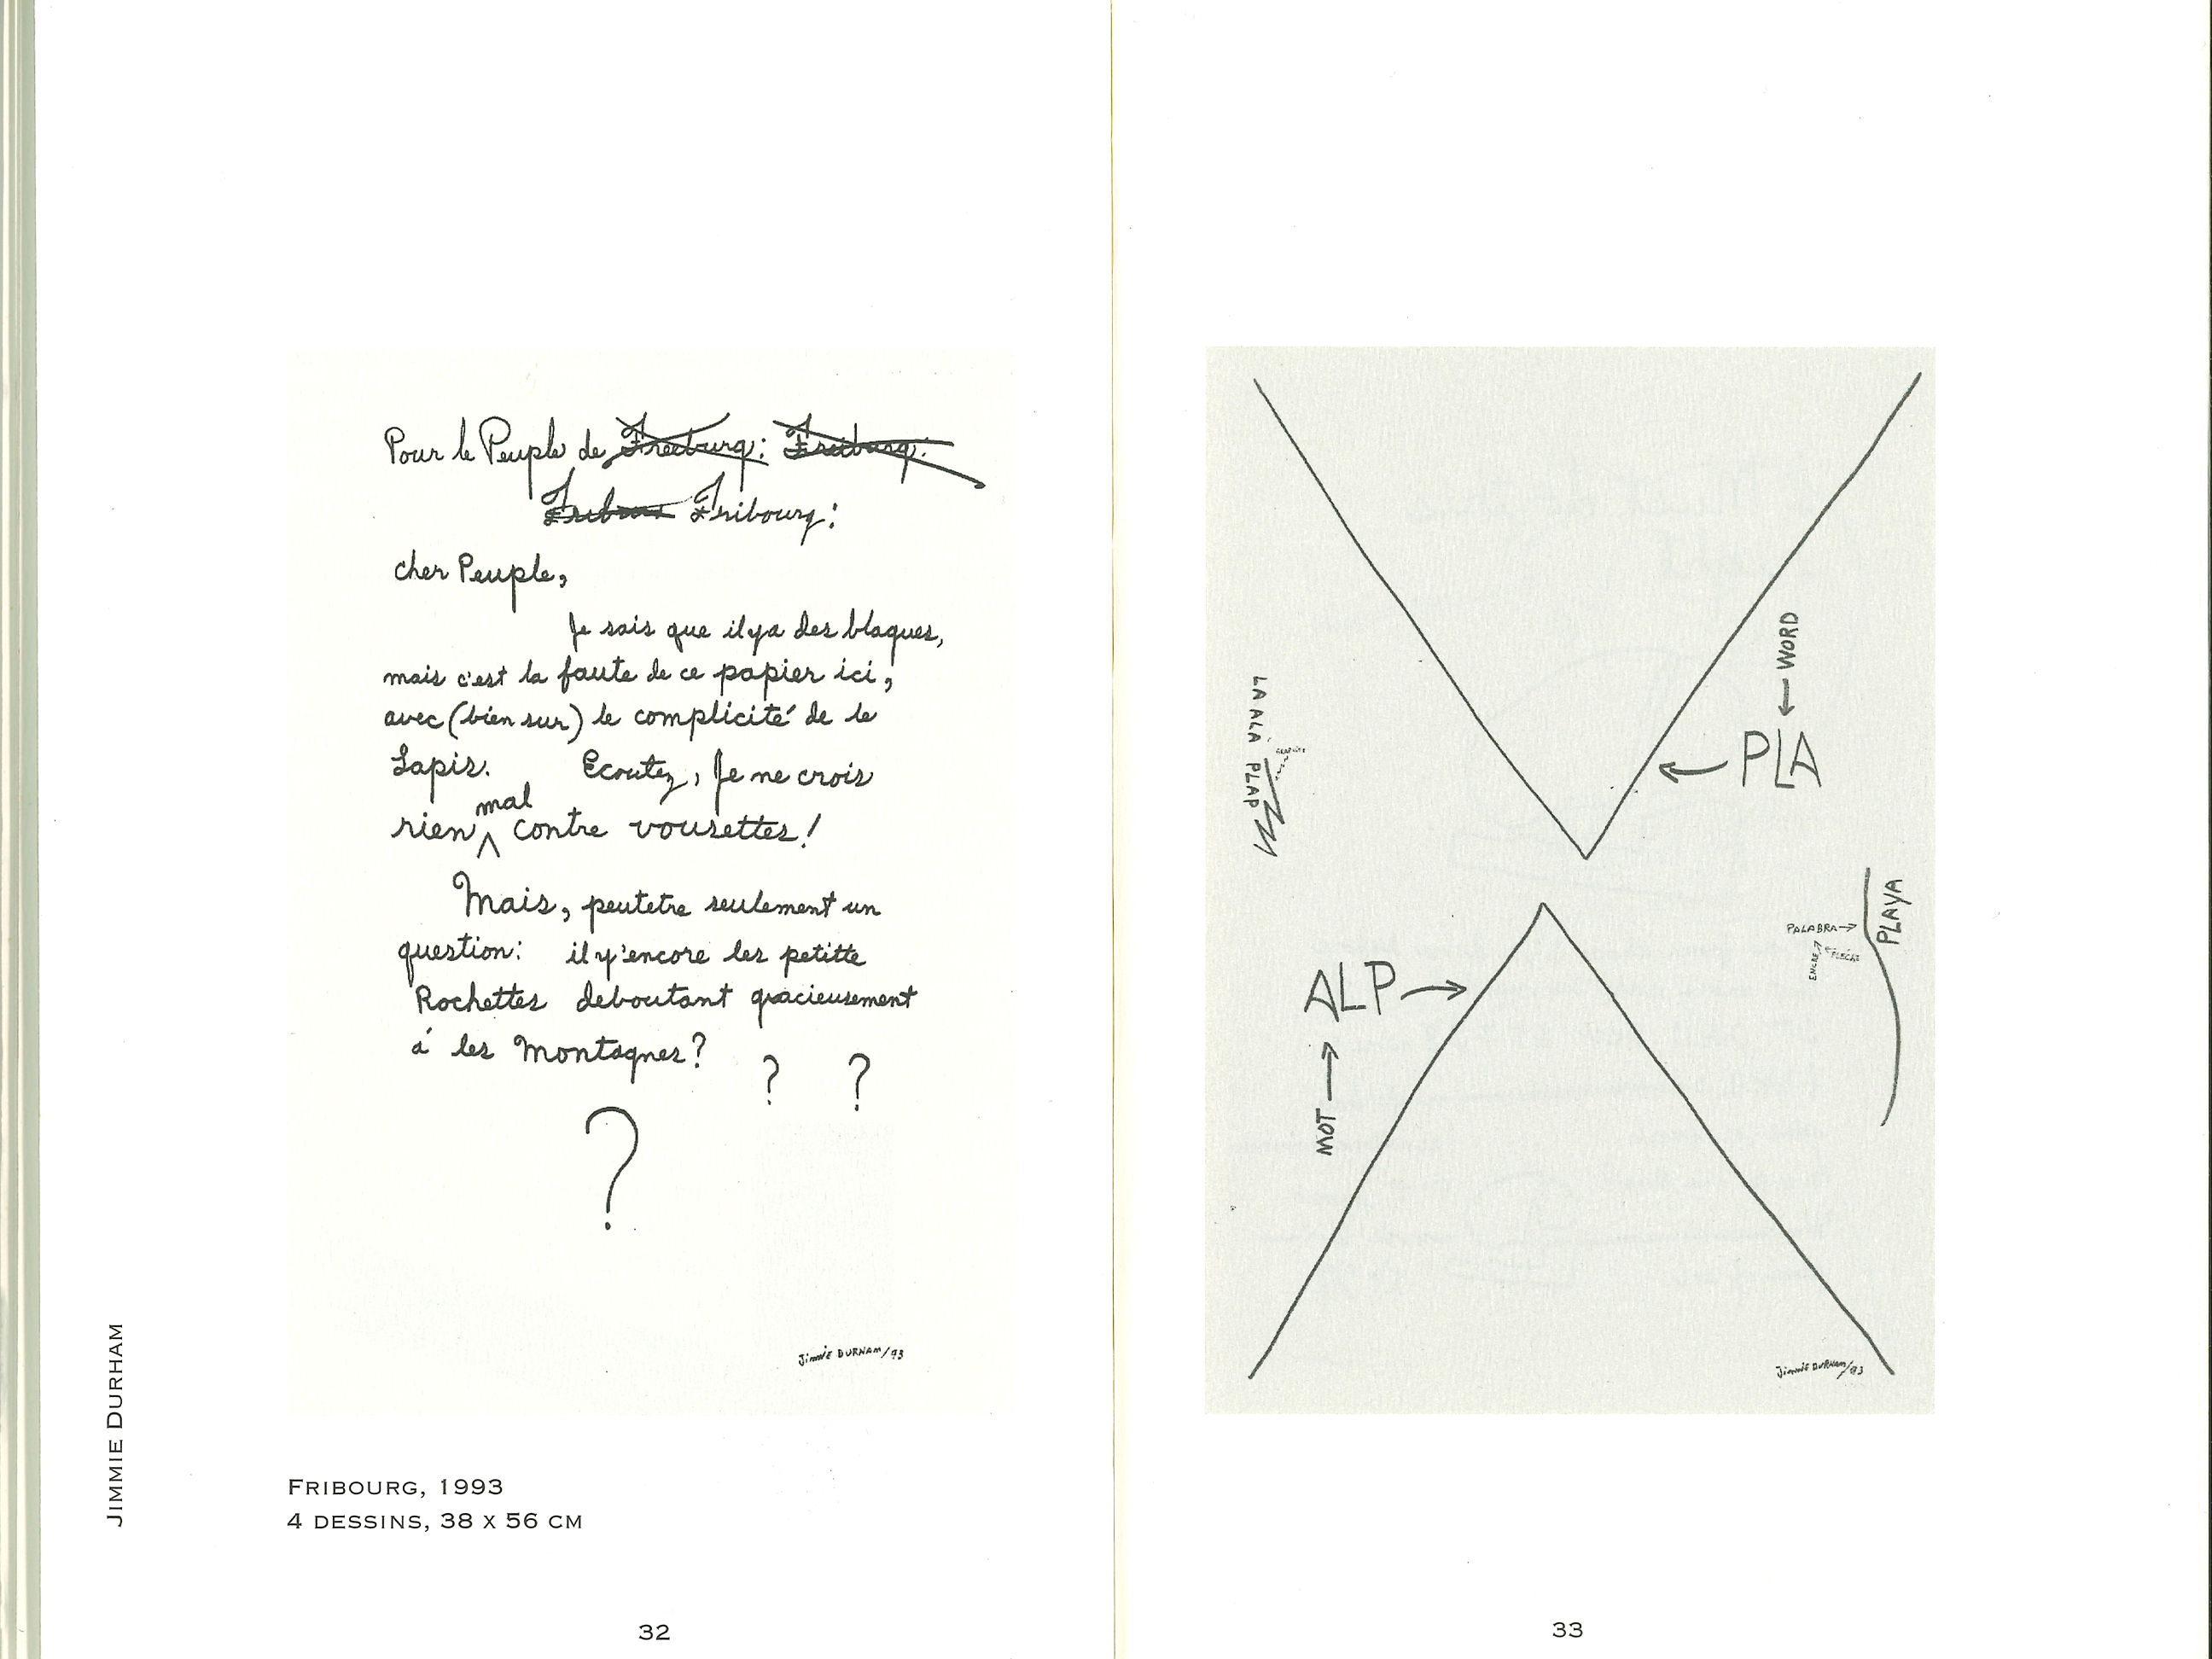 Pour le Peuple de Freeburg: Freiburg:
Fribour Fribourg:
cher Peuple,
Je sais que il ya des blaques,
mais c'est la faute de ce papier ici,
avec (bien sur) le complicité de le
Lapis. Ecoutez, Je ne crois
mal
rien ^ contre vousettes!
Mais, peutetre seulement un
question: il y'encore les petitte
Rochettes deboutant gracieusement
á les Montagnes?
? ?
?
JimmiE DURHAM/93
JIMMIE DURHAM
FRIBOURG, 1993
4 DESSINS, 38 X 56 CM
32
WORD
PLA
LA ALA PLAP
PLAYA
PALABRA
ENCRE
ALP
MOT
JimmiE DURHAM/93
33